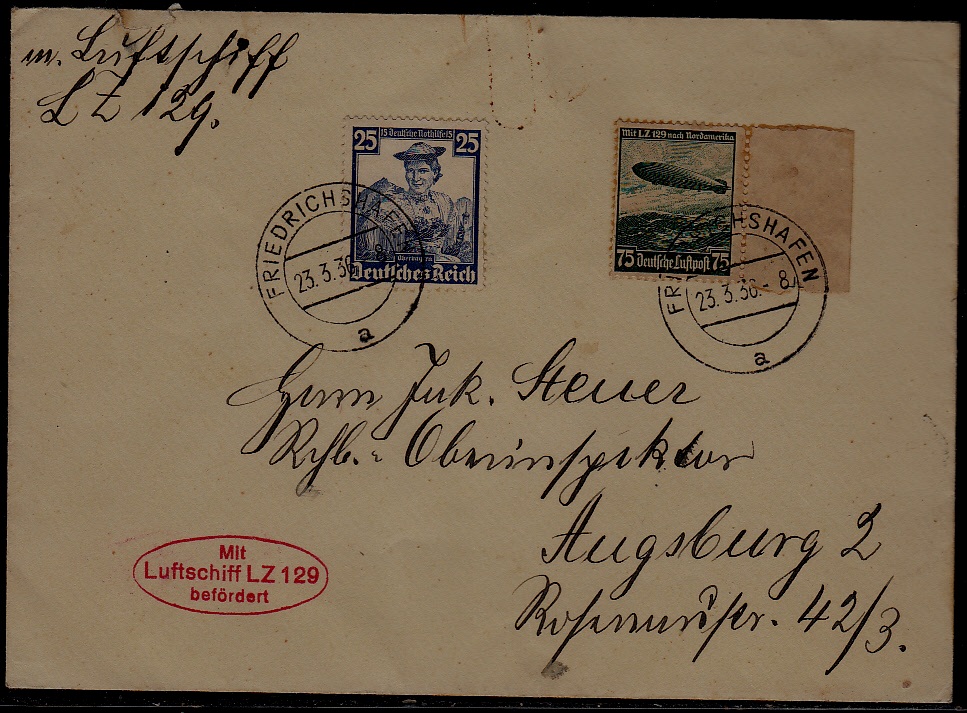 m. Luftschiff
LZ 129.
25 15 Deutsche Nothilfe 15 25
Oberbayern
Deutsches Reich
Mit LZ 129 nach Nordamerika
75 Deutsche Luftpost 75
FRIEDRICHSHAFEN
23.3.36.- 8
a
FRIEDRICHSHAFEN
23.3.36.- 8
a
Herrn Jnk. Steuer
Rchb.- Oberinspektor
Augsburg 2
42/3.
Mit
Luftschiff LZ 129
befördert